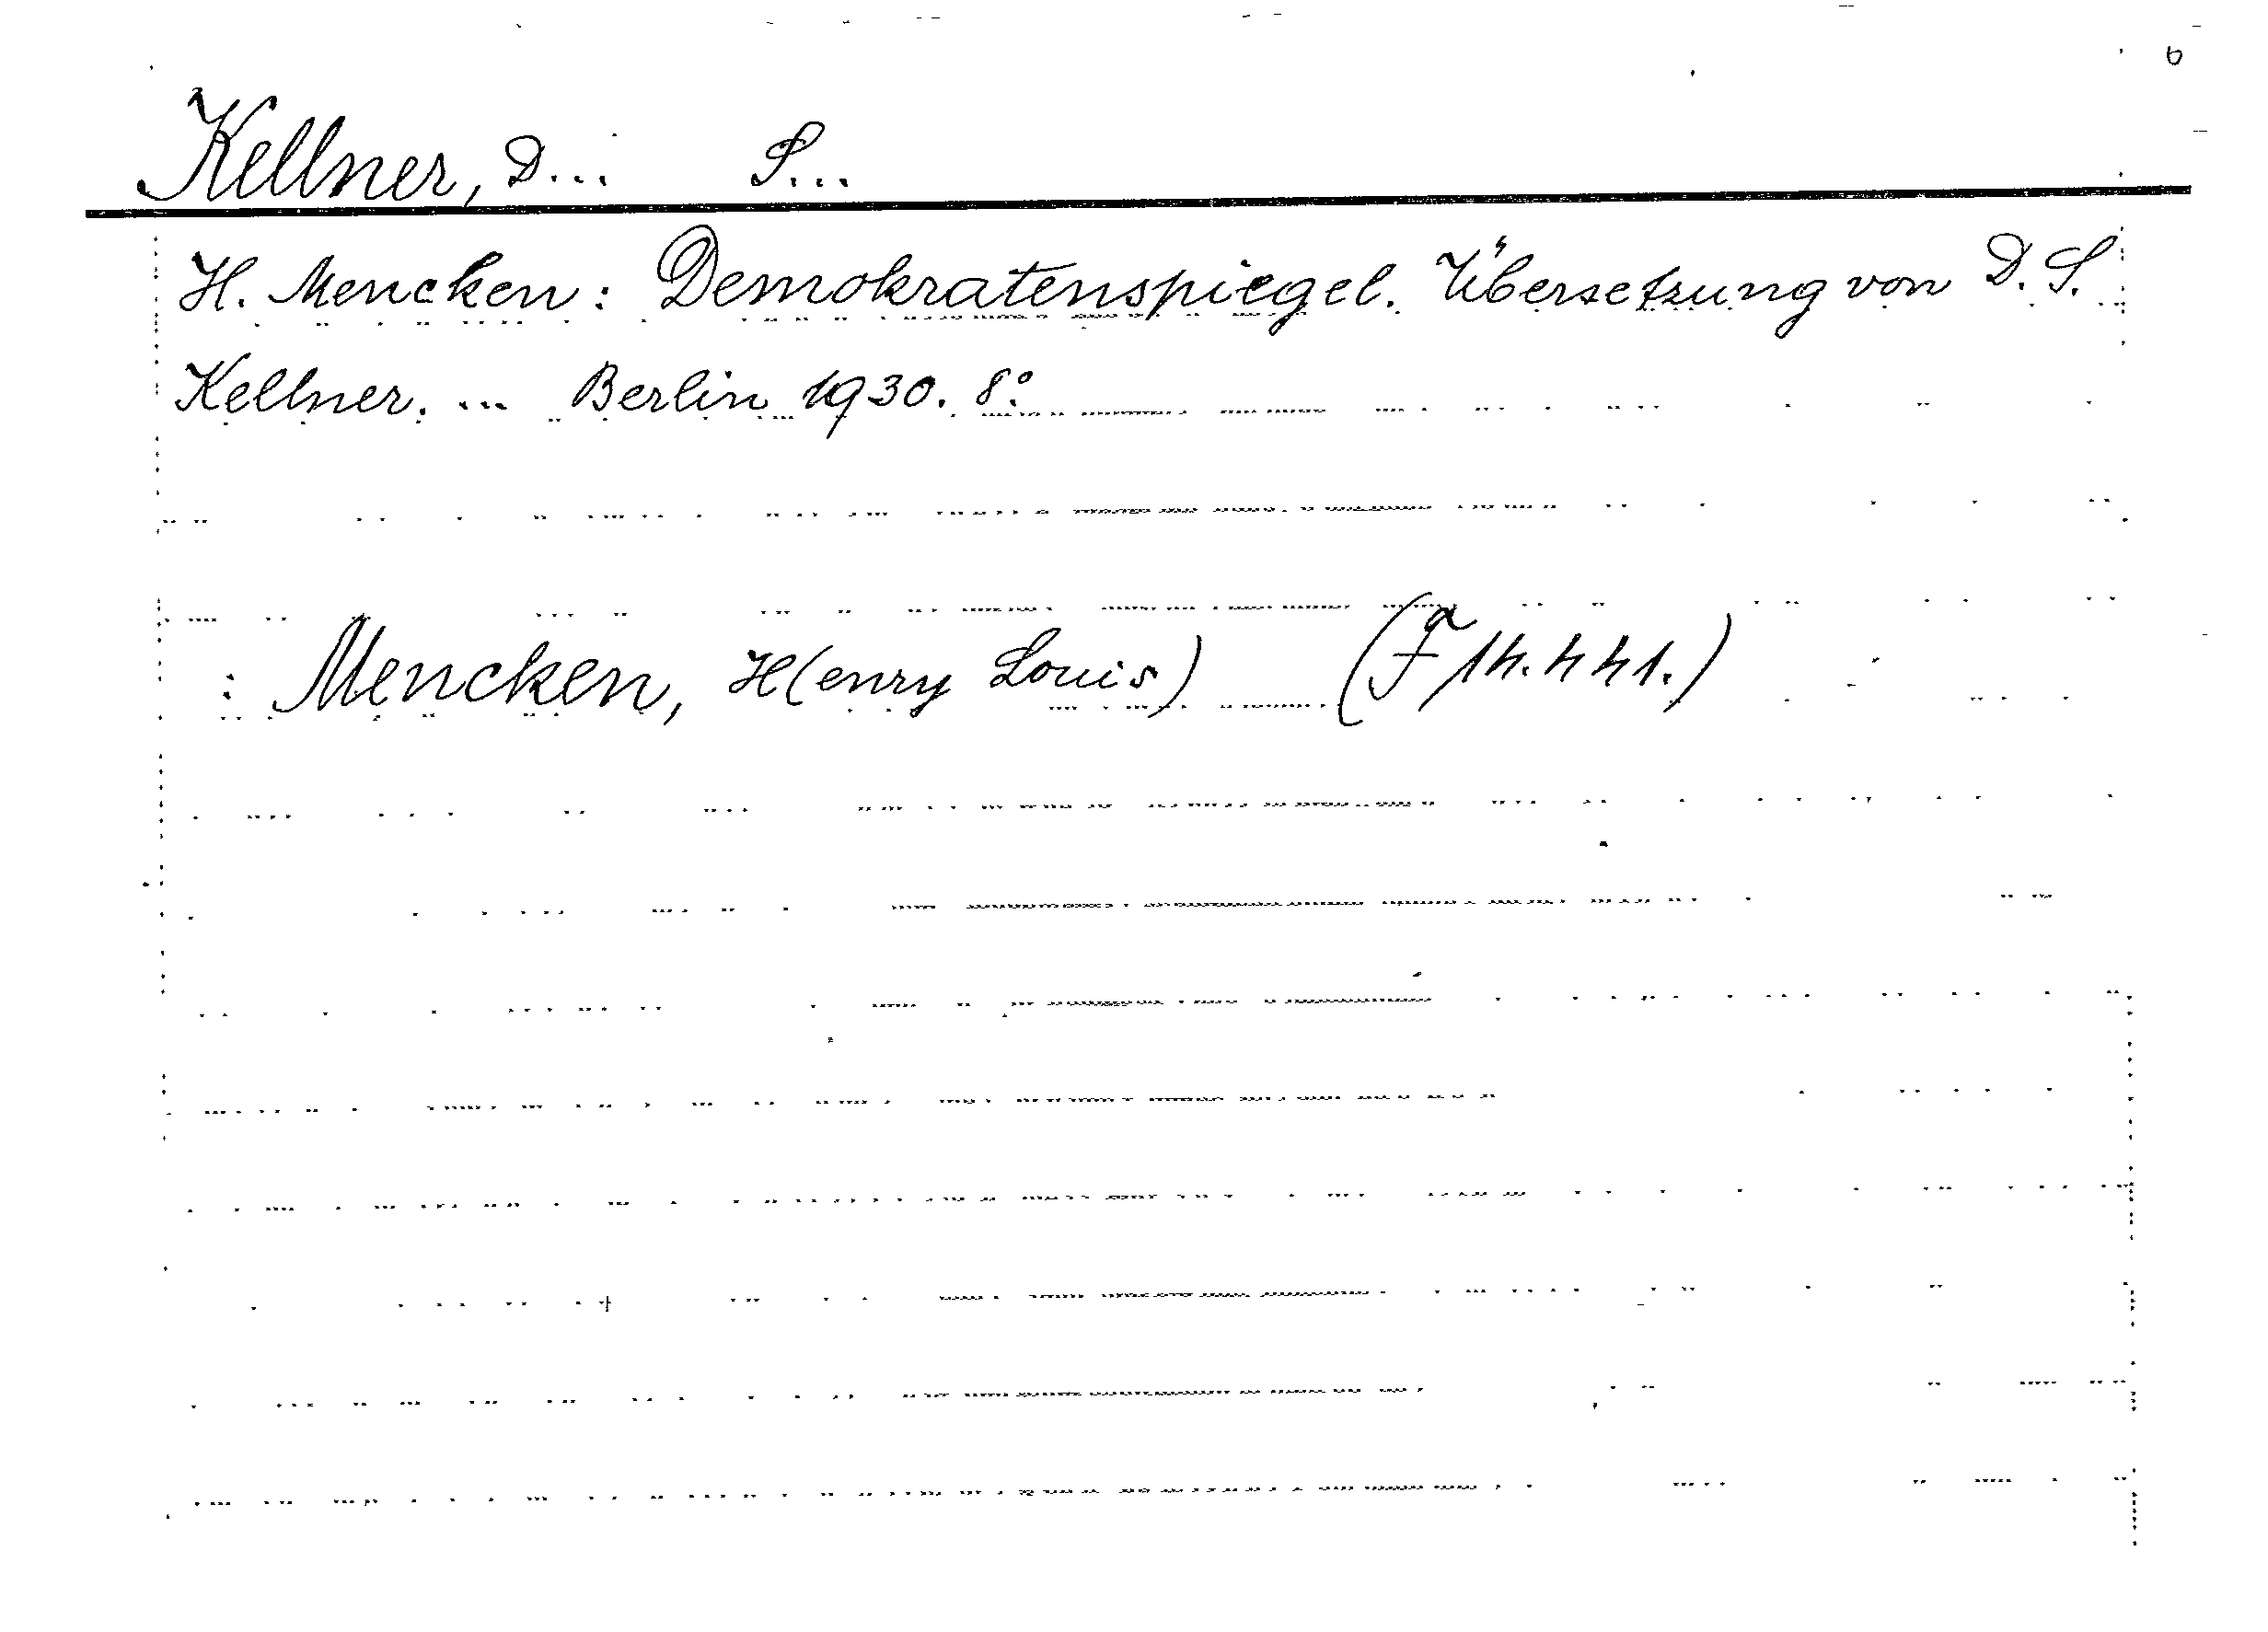 6
Kellner, D... S...
H. Mencken: Demokratenspiegel. Übersetzung von D. S.
Kellner. ... Berlin 1930. 8°.
: Mencken, H(enry Louis) (F 14.441.)